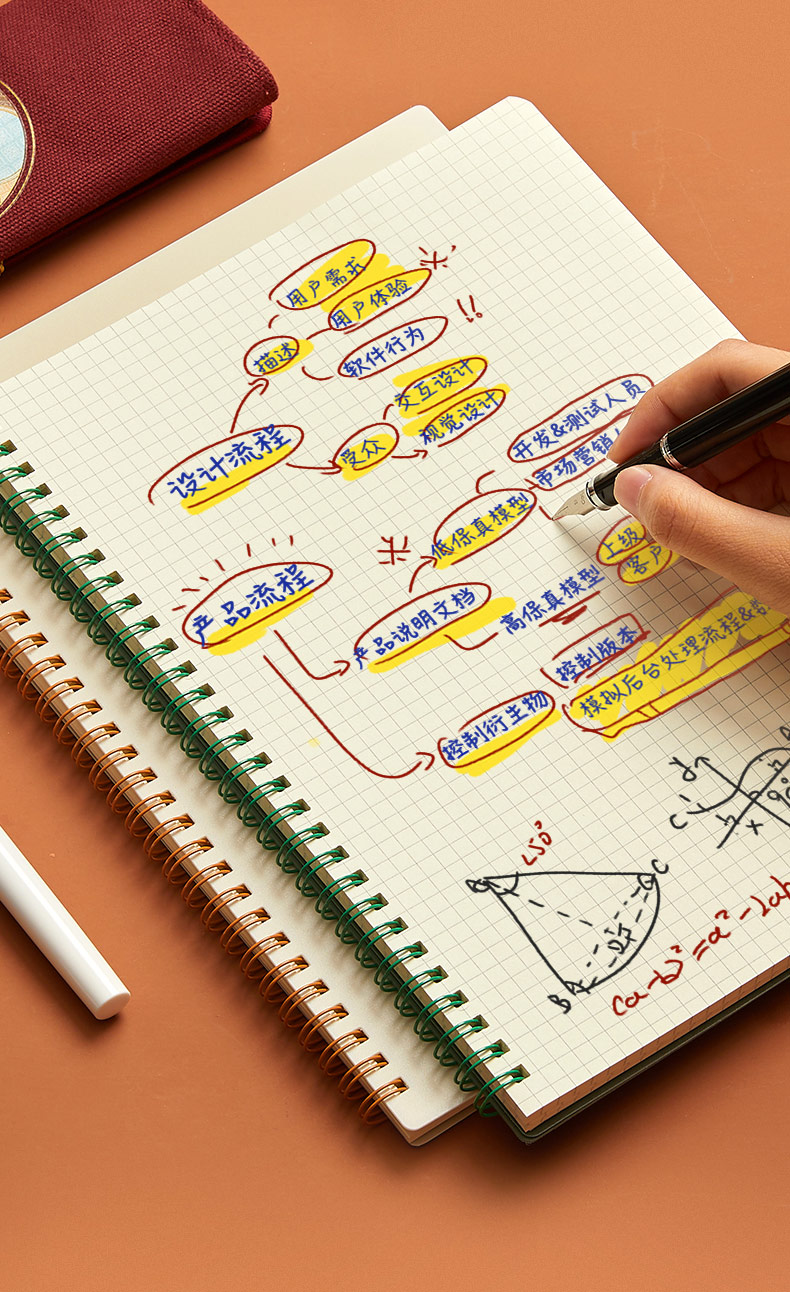 用户需求
用户体验
描述
软件行为
交互设计
视觉设计
受众
设计流程
开发&测试人员
市场营销
低保真模型
上级
客户
产品流程
产品说明文档
高保真模型
控制版本
模拟后台处理流程&
控制衍生物
y
C
x
∠50°
C
B
(a-b)²=a²-2ab